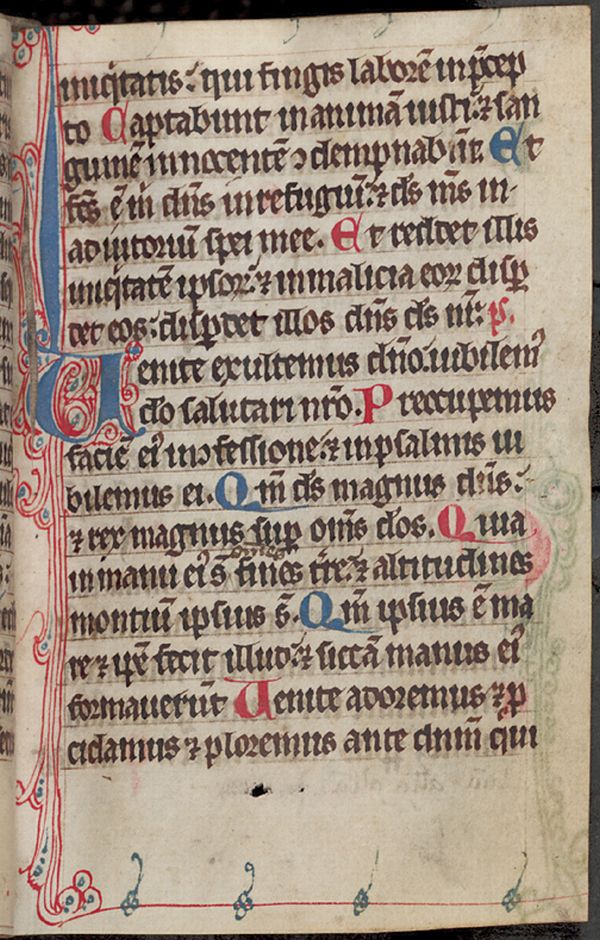 iniq̃tatis: qui fingis laborē in p̄cep
to Captabunt in animā iusti: ⁊ san
guinē innocentē ↄdempnabūt. Et
fc̄s ē m̄ dn̄s in refugiū: ⁊ ds̄ m̄s in
adiutoriū spei mee. Et reddet illis
iniq̃tatē ipsoꝝ: ⁊ in malicia eoꝝ disꝑ
det eos: disꝑdet illos dn̄s ds̄ nr̄: p̄.
Uenite exultemus dn̄o: iubilem᷒
do salutari nr̄o. Preoccupemus
faciē ei᷒ in ↄfessione: ⁊ in psalmis iu
bilemus ei. Qm̄ ds̄ magnus dn̄s:
⁊ rex magnus sup̄ om̄s dos. Quia
omēs
in manu ei᷒ s̄ fines tr̄e: ⁊ altitudines
montiū ipsius s̄. Qm̄ ipsius ē ma
re ⁊ ip̄e fecit illud: ⁊ siccā manus ei᷒
formauerūt Uenite adoremus ⁊ p̄
cidamus ⁊ ploremus ante dnm̄ qui